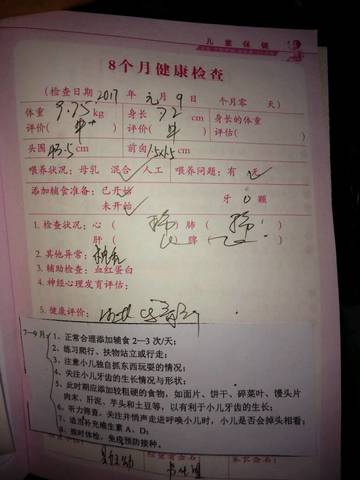 儿童保健
8个月健康检查
(检查日期 2017 年 元 月 9 日 个月零 天)
体重 9.75 kg 身长 72 cm 身长的体重
评价( 中+ ) 评价( 中 ) 评估( )
头围 43.5 cm 前囟 1.5×1.5 cm
喂养状况：母乳 混合 人工 喂养问题：有 无
添加辅食准备：已开始 牙 0 颗
未开始
1. 检查状况：心( ) 肺( )
肝( ) 脾( )
2. 其他异常：
3. 辅助检查：血红蛋白
4. 神经心理发育评估：
5. 健康评价：
7—9月
1、正常合理添加辅食 2—3 次/天；
2、练习爬行、扶物站立或行走；
3、注意小儿独自抓东西玩耍的情况；
4、关注小儿牙齿的生长情况与形状；
5、此时期应添加较粗硬的食物，如面片、饼干、碎菜叶、馒头片
肉末、肝泥、芋头和土豆等，以有利于小儿牙齿的生长；
6、听力筛查。关注并悄声走进呼唤小儿时，小儿是否会掉头相看；
7、适当补充维生素 A、D；
8、按时体检、免疫预防接种。